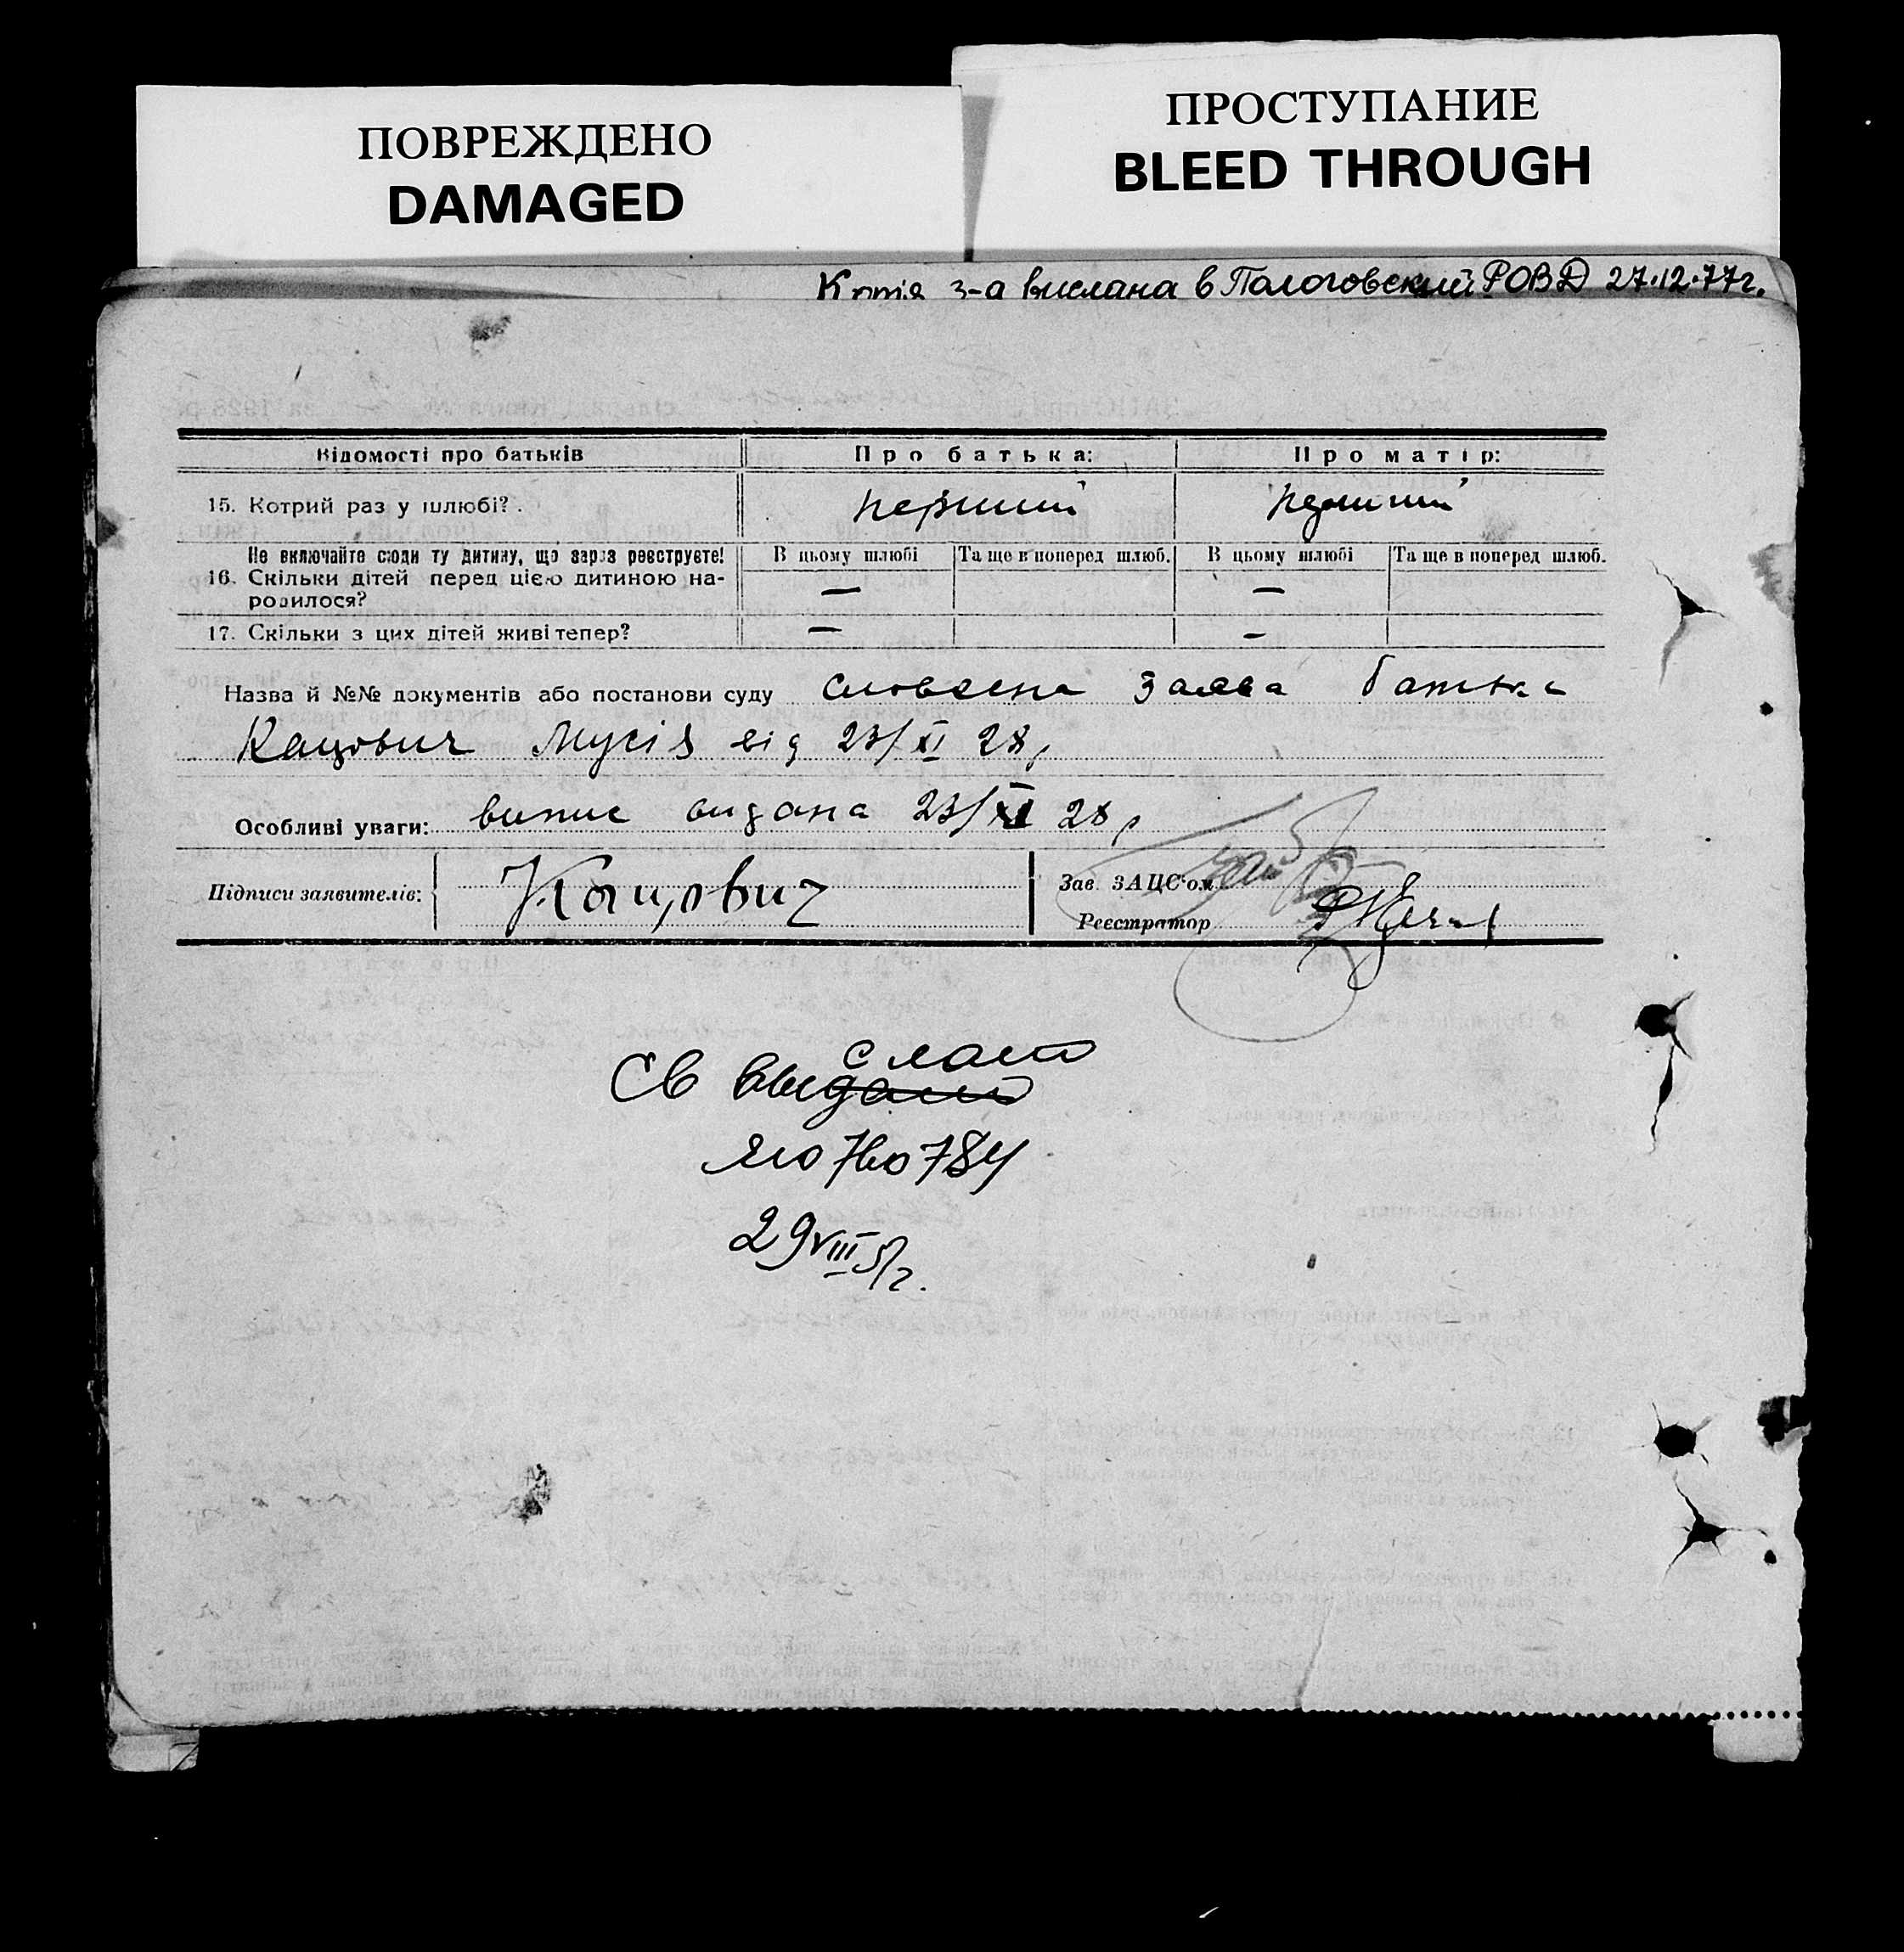 ПОВРЕЖДЕНО
DAMAGED
ПРОСТУПАНИЕ
BLEED THROUGH
Копія з-а вислана в Пологовский РОВД 27.12.77г.
Відомості про батьків Про батька: Про матір:
15. Котрий раз у шлюбі? перший перший
Не включайте сюди ту дитину, що зараз реєструєте! В цьому шлюбі Та ще в поперед шлюб. В цьому шлюбі Та ще в поперед шлюб.
16. Скільки дітей перед цією дитиною на-
родилося? — —
17. Скільки з цих дітей живі тепер? — —
Назва й №№ документів або постанови суду словесна заява батька
Кацович Мусія від 23/XI 28 р
Особливі уваги: випис видана 23/XI 28 р
Підписи заявителів: Кацович Зав. ЗАЦС'ом
Реєстратор
слано
Св выдано
ЯЮ 760784
29 VIII 51г.